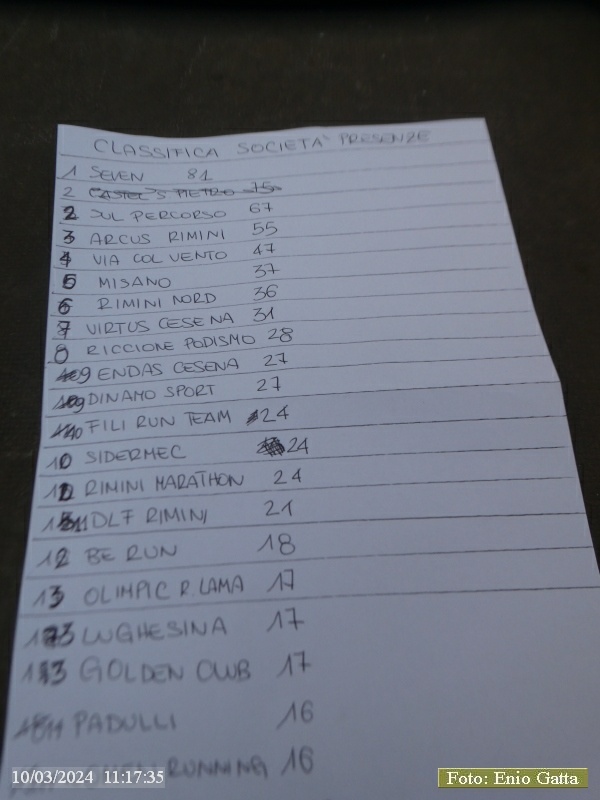 CLASSIFICA SOCIETA' PRESENZE
1 SEVEN 81
2 CASTEL S PIETRO 75
2 SUL PERCORSO 67
3 ARCUS RIMINI 55
4 VIA COL VENTO 47
5 MISANO 37
6 RIMINI NORD 36
7 VIRTUS CESENA 31
8 RICCIONE PODISMO 28
9 ENDAS CESENA 27
9 DINAMO SPORT 27
10 FILI RUN TEAM 24
10 SIDERMEC 24
10 RIMINI MARATHON 24
11 DLF RIMINI 21
12 BE RUN 18
13 OLIMPIC R. LAMA 17
13 LUGHESINA 17
13 GOLDEN CLUB 17
PADULLI 16
RUNNING 16
10/03/2024 11:17:35
Foto: Enio Gatta